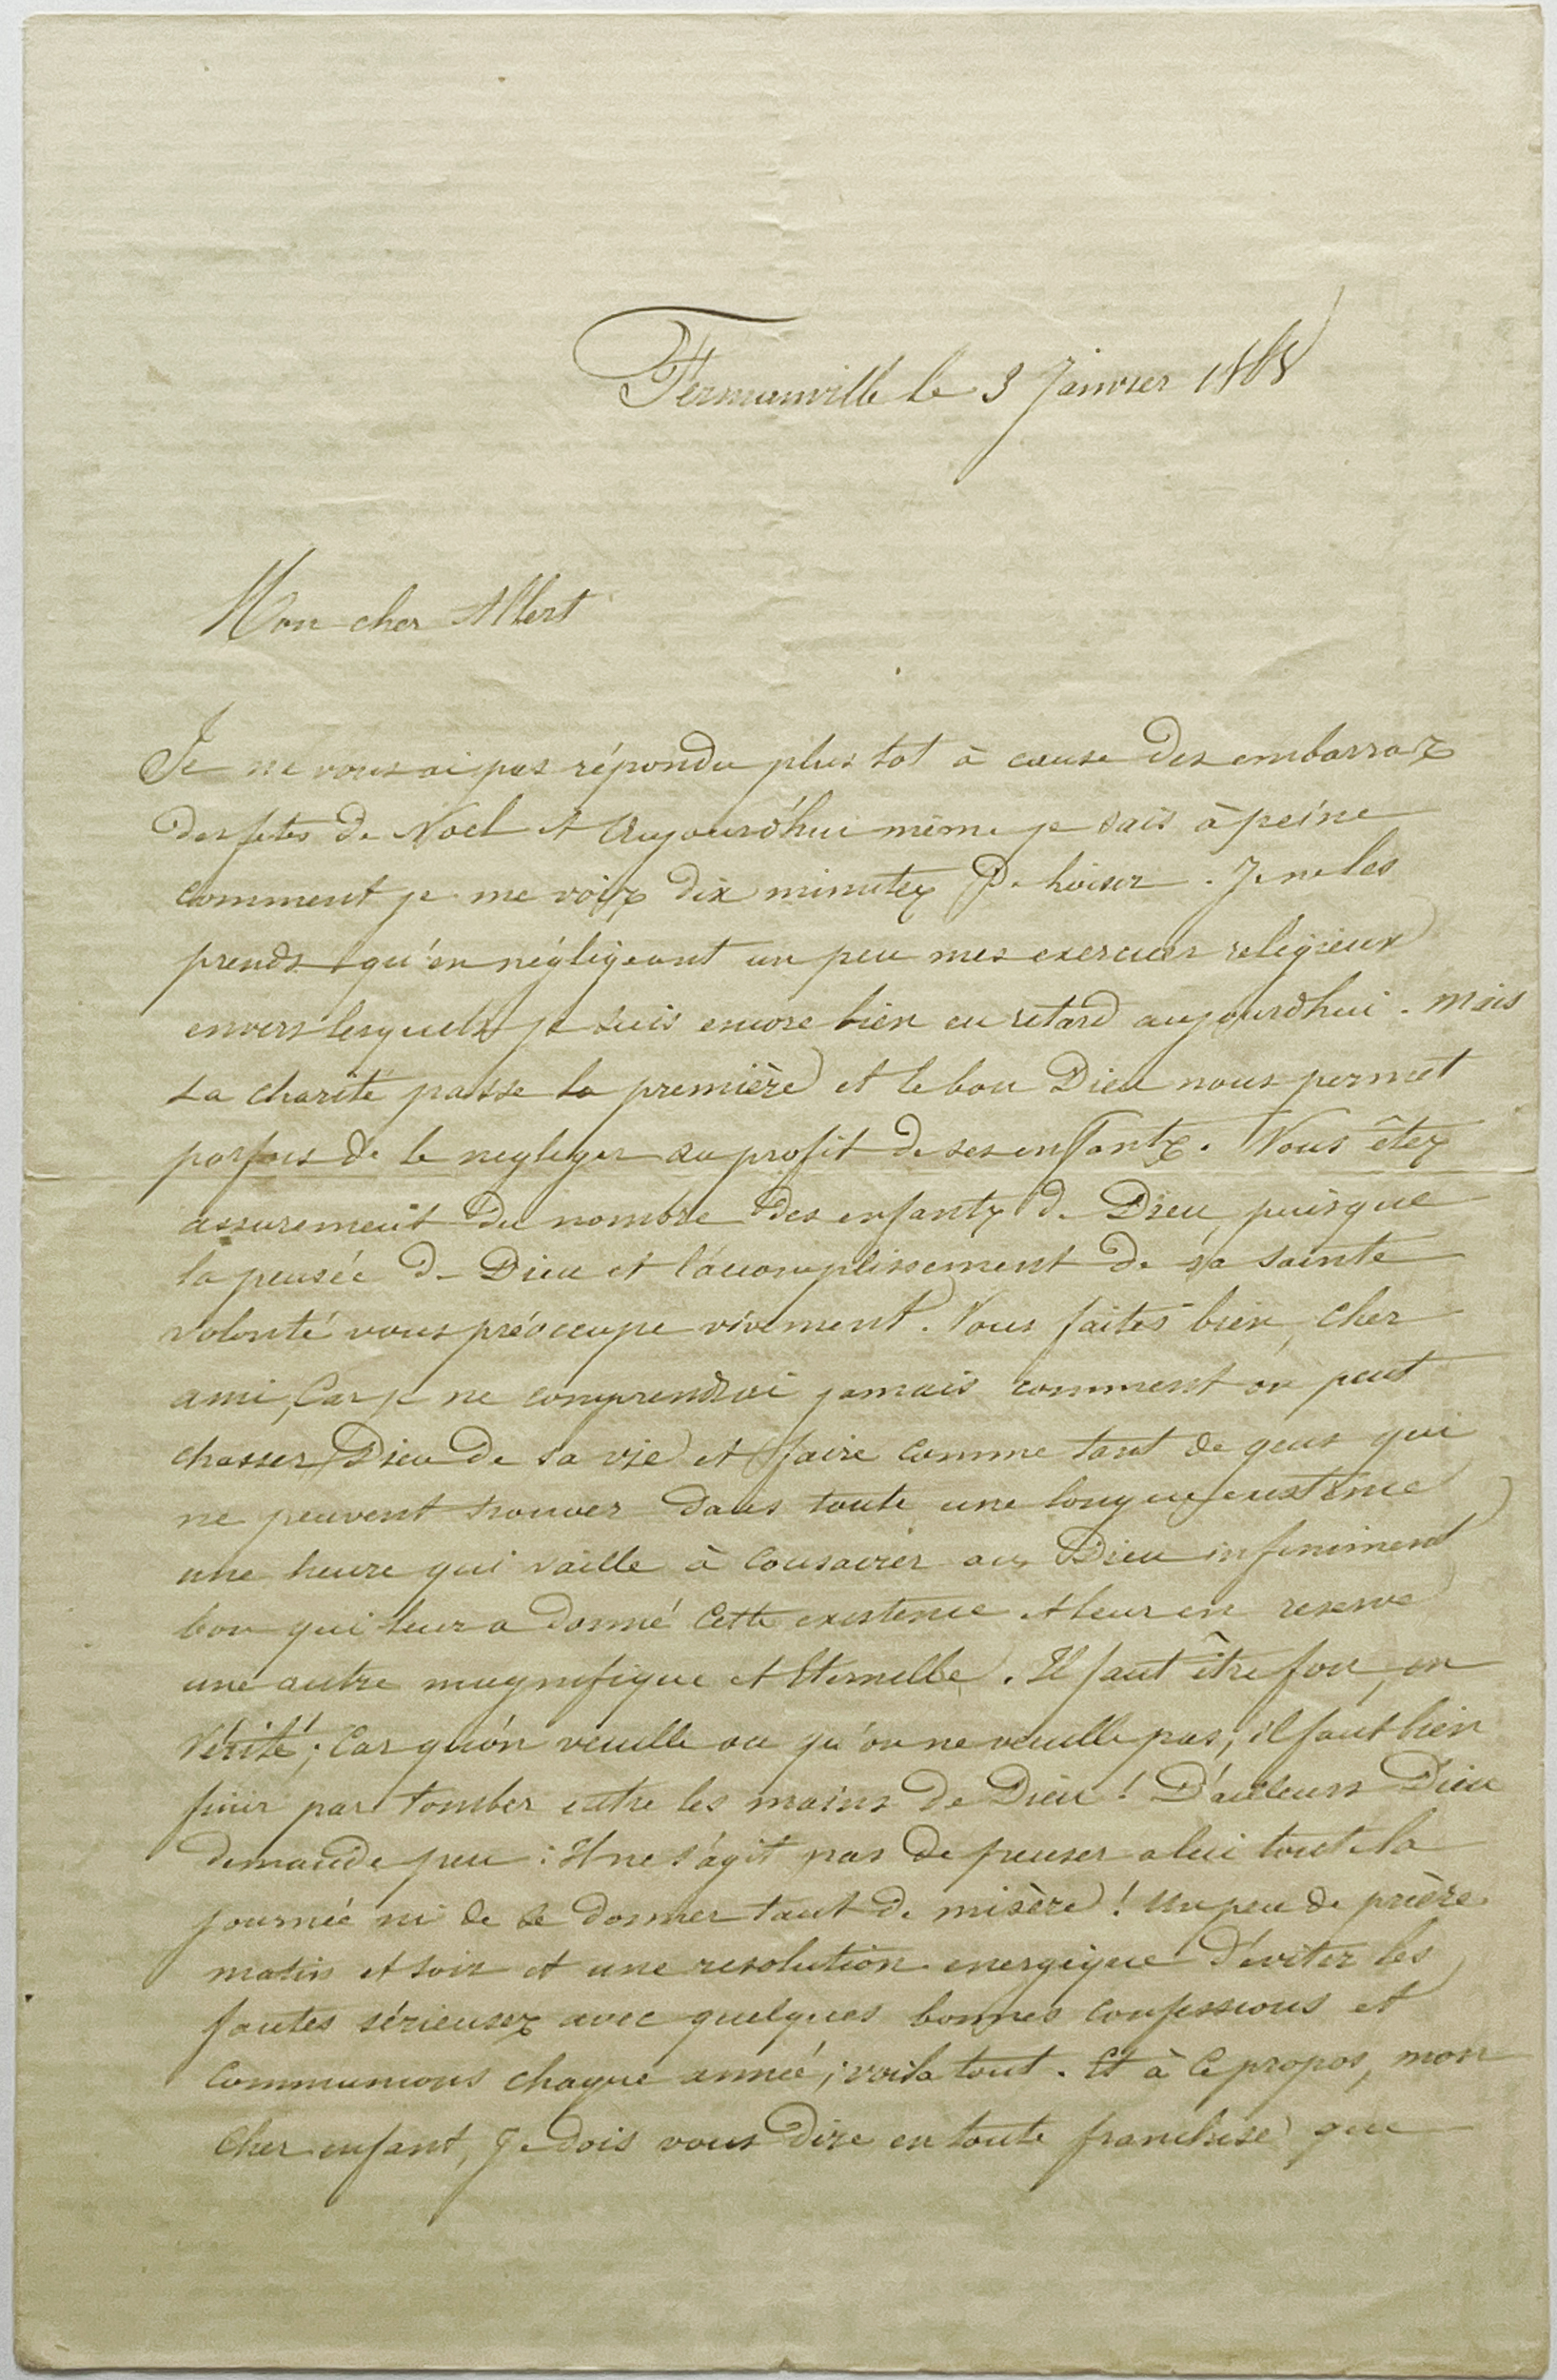 Fermanville le 3 Janvier
Mon cher Albert
Je ne vous ai pas répondu plus tot à cause des embarras
des fetes de Noel et Aujourd'hui même je sais à peine
comment je me vois dix minutes de loisir. Je ne les
prends qu'en négligeant un peu mes exercices religieux
envers lesquels je suis encore bien en retard aujourd'hui. Mais
La charité passe la première et le bon Dieu nous permet
parfois de le negliger au profit de ses enfants. Vous êtes
assurement du nombre des enfants de Dieu puisque
la pensée de Dieu et l'accomplissement de sa sainte
volonté vous préoccupe vivement. Vous faites bien, cher
ami, Car je ne comprendrai jamais comment on peut
chasser Dieu de sa vie et faire comme tant de gens qui
ne peuvent trouver dans toute une longue existence
une heure qui vaille à consacrer au Dieu infiniment
bon qui leur a donné cette existence et leur en reserve
une autre magnifique et Eternelle. Il faut être fou, en
Vérité; Car qu'on veuille ou qu'on ne veuille pas, il faut bien
finir par tomber entre les mains de Dieu! D'ailleurs Dieu
demande peu: Il ne s'agit pas de penser a lui toute la
journée ni de se donner tant de misère! Un peu de prière
matin et soir et une resolution energique d'eviter les
fautes sérieuses avec quelques bonnes confessions et
Communions chaque année; voila tout. Et à ce propos, mon
Cher enfant, Je dois vous dire en toute franchise que